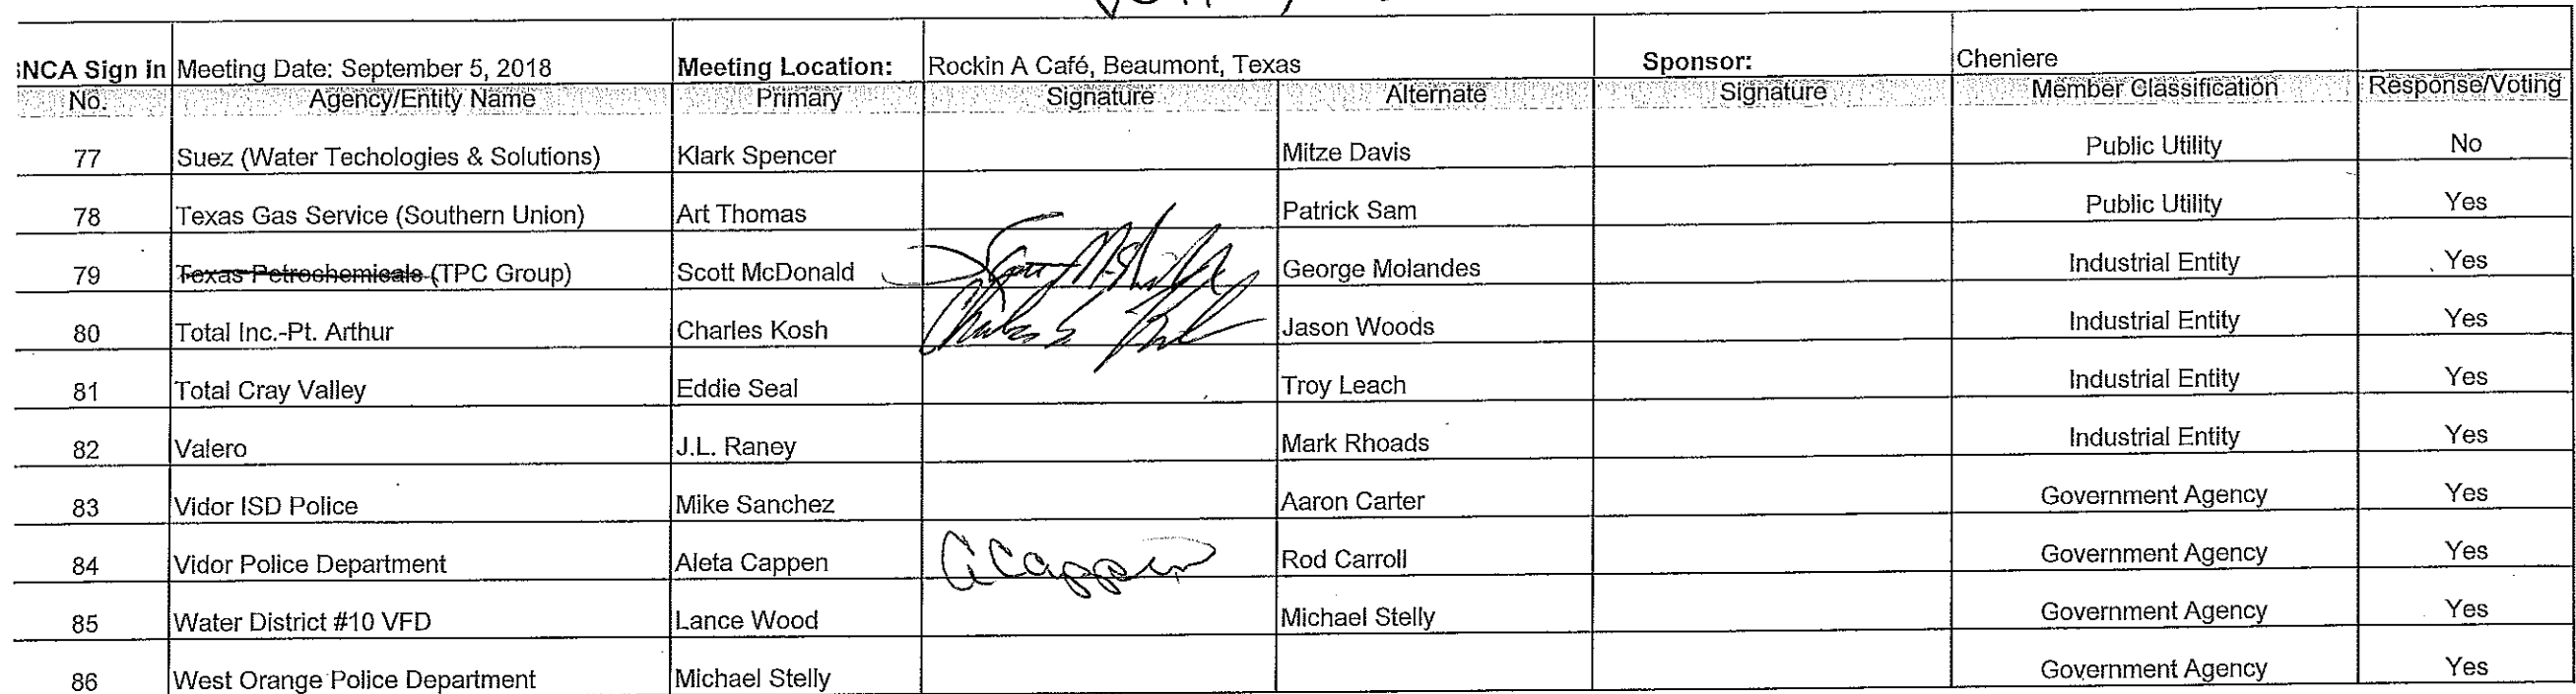 NCA Sign in Meeting Date: September 5, 2018 Meeting Location: Rockin A Café, Beaumont, Texas Sponsor: Cheniere
No. Agency/Entity Name Primary Signature Alternate Signature Member Classification Response/Voting
77 Suez (Water Techologies & Solutions) Klark Spencer Mitze Davis Public Utility No
78 Texas Gas Service (Southern Union) Art Thomas Patrick Sam Public Utility Yes
79 Texas Petrochemicals (TPC Group) Scott McDonald George Molandes Industrial Entity Yes
80 Total Inc.-Pt. Arthur Charles Kosh Jason Woods Industrial Entity Yes
81 Total Cray Valley Eddie Seal Troy Leach Industrial Entity Yes
82 Valero J.L. Raney Mark Rhoads Industrial Entity Yes
83 Vidor ISD Police Mike Sanchez Aaron Carter Government Agency Yes
84 Vidor Police Department Aleta Cappen ACappen Rod Carroll Government Agency Yes
85 Water District #10 VFD Lance Wood Michael Stelly Government Agency Yes
86 West Orange Police Department Michael Stelly Government Agency Yes